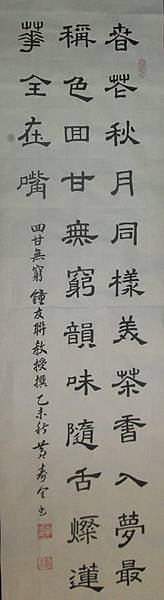 春花秋月同樣美茶香入夢最
稱色回甘無窮韻味隨舌燦蓮
華全在嘴
回甘無窮 鐘友聯教授撰 乙未秋 黃壽全書